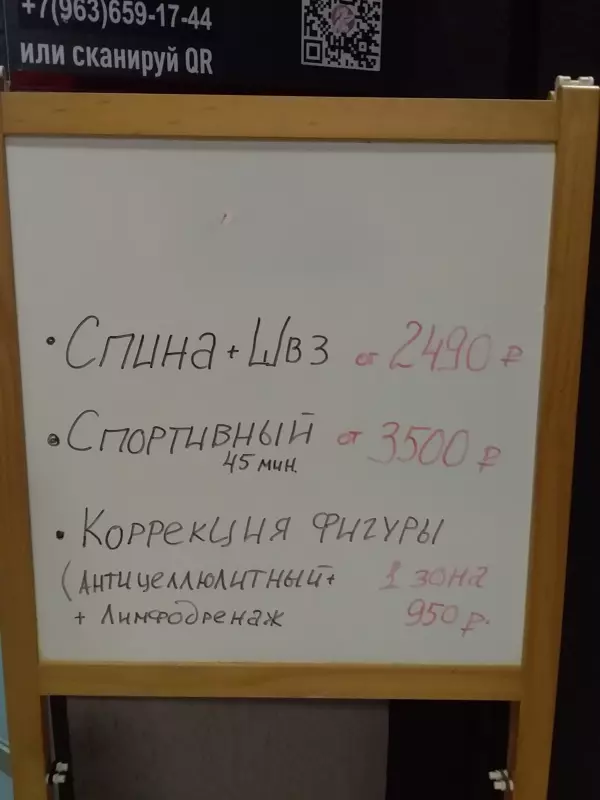 +7(963)659-17-44
или сканируй QR
• Спина + Швз от 2490 ₽
• Спортивный от 3500 ₽
45 мин.
• Коррекция фигуры
(Антицеллюлитный + 1 зона
+ Лимфодренаж 950 ₽.